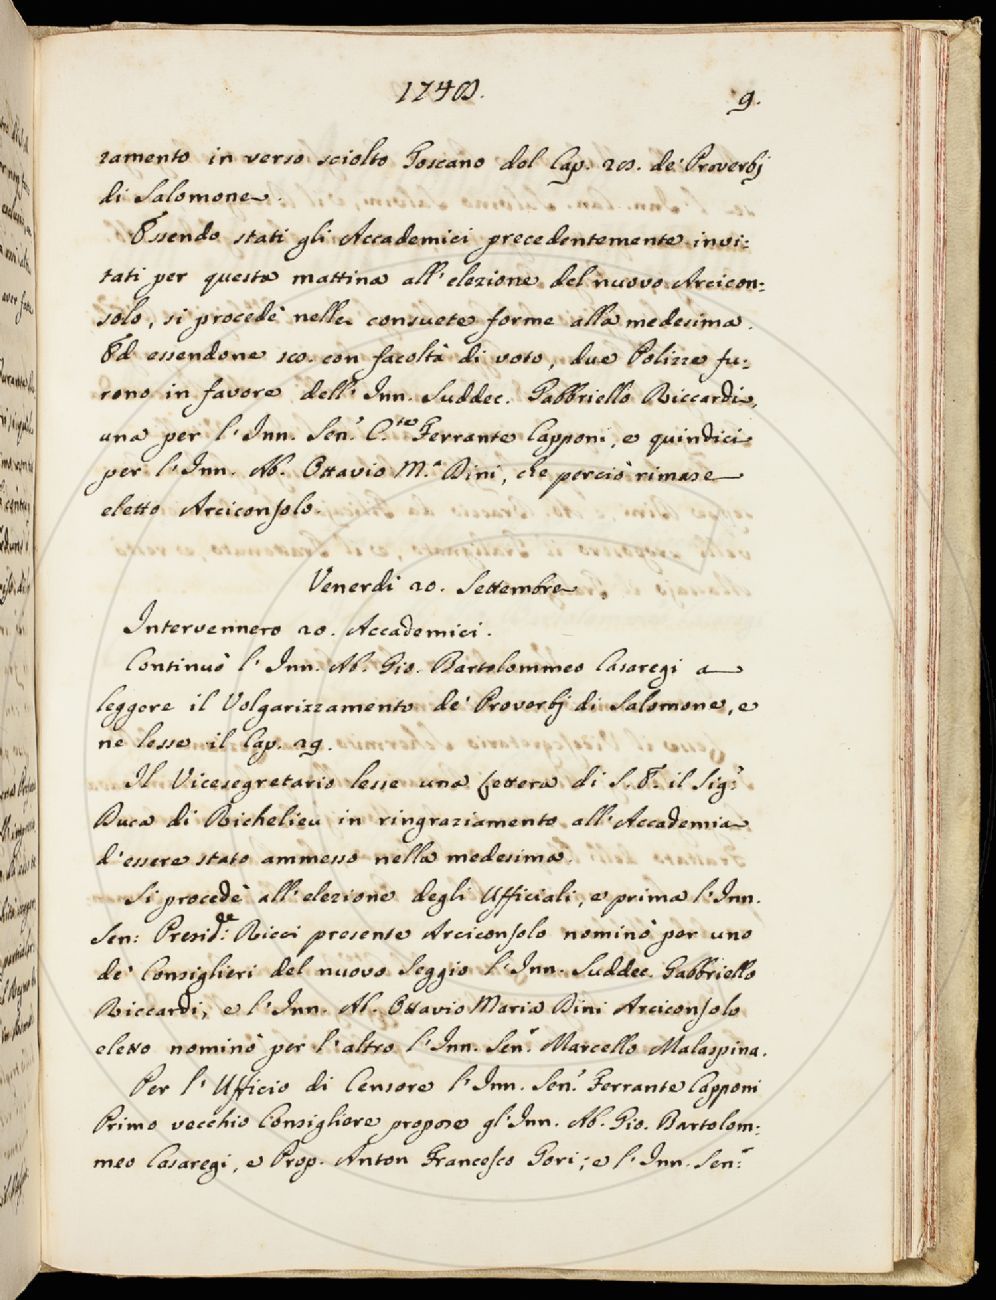 1748.
9.
zamento in verso sciolto Toscano del Cap. 28. de' Proverbj
di Salomone.
Essendo stati gli Accademici precedentemente invi:
tati per questa mattina all' elezione del nuovo Arcicon:
solo, si procedè nelle consuete forme alla medesima.
Ed essendone 20. con facoltà di voto, due Polizze fu:
rono in favore dell' Inn. Suddec. Gabbriello Riccardi,
una per l' Inn. Sen.r C.te Ferrante Capponi, e quindici
per l' Inn. Ab. Ottavio M.a Dini, che perciò rimase
eletto Arciconsolo.
Venerdì 20. Settembre
Intervennero 20. Accademici.
Continuò l' Inn. Ab. Gio. Bartolommeo Casaregi a
leggere il Volgarizzamento de' Proverbj di Salomone, e
ne lesse il Cap. 29.
Il Vicesegretario lesse una Lettera di S. E. il Sig.r
Duca di Richelieu in ringraziamento all' Accademia
d' essere stato ammesso nella medesima.
Si procedè all' elezione degli Ufficiali, e prima l' Inn.
Sen: Presid.de Ricci presente Arciconsolo nominò per uno
de' Consiglieri del nuovo Seggio l' Inn. Suddec. Gabbriello
Riccardi, e l' Inn. Ab. Ottavio Maria Dini Arciconsolo
eletto nominò per l' altro l' Inn. Sen.r Marcello Malaspina.
Per l' Ufficio di Censore l' Inn. Sen.r Ferrante Capponi
Primo vecchio Consigliere propose gl' Inn. Ab. Gio. Bartolom:
meo Casaregi, e Prop. Anton Francesco Gori; e l' Inn. Sen.r